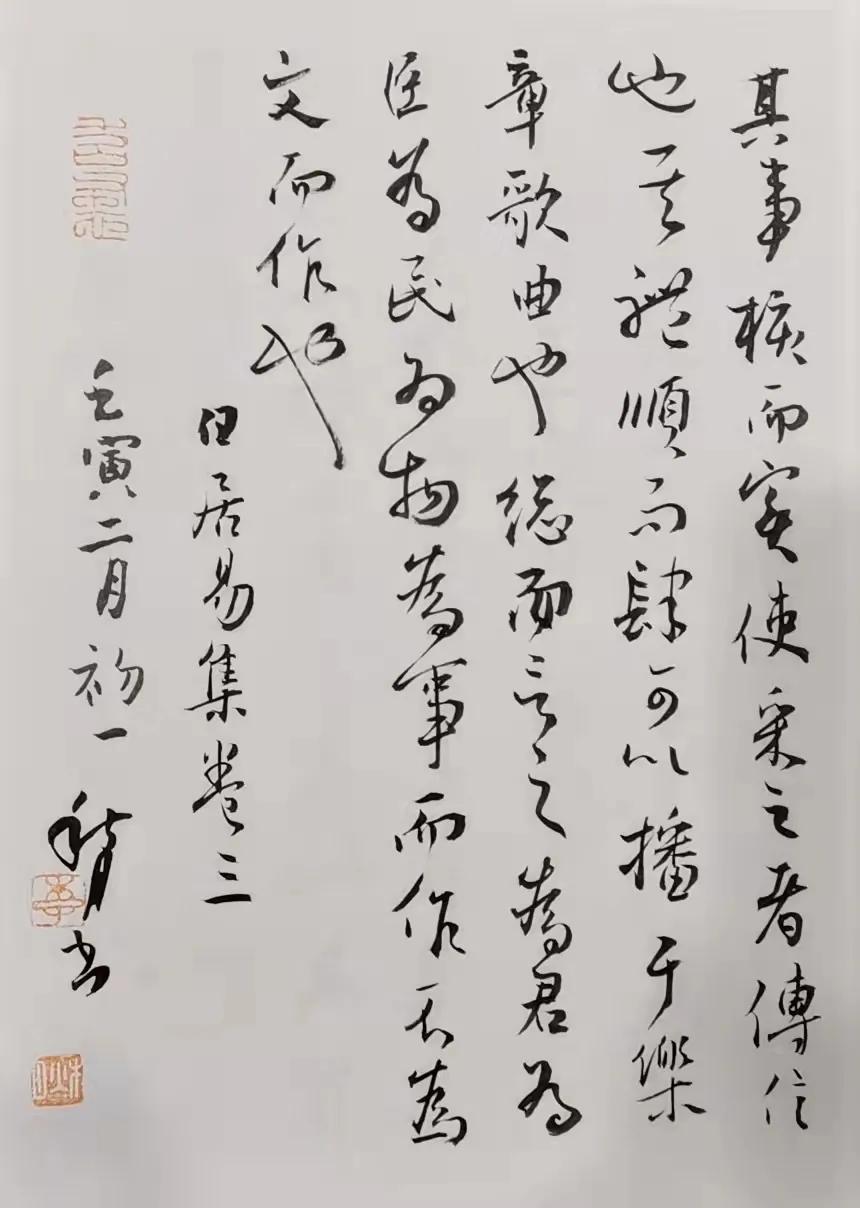 其事核而实使采之者傳信
也其體順而肆可以播于樂
章歌曲也總而言之為君為
臣為民為物為事而作不為
文而作也
居易集卷三
壬寅二月初一
書